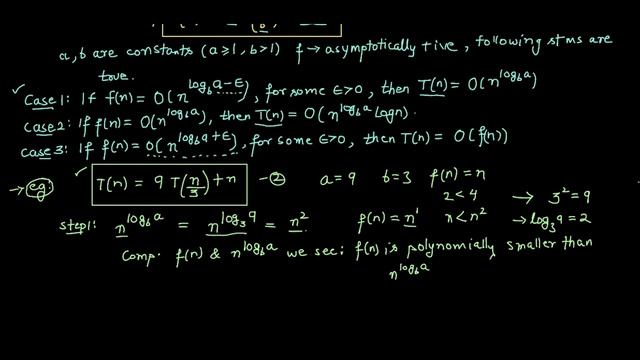 a, b are constants (a≥1, b>1) f → asymptotically +ive, following stms are
true.
Case 1: If f(n) = O(n^{log_b a-ε}), for some ε>0, then T(n) = O(n^{log_b a})
Case 2: If f(n) = O(n^{log_b a}), then T(n) = O(n^{log_b a} log n).
Case 3: If f(n) = O(n^{log_b a+ε}), for some ε>0, then T(n) = O(f(n))
→ eg: T(n) = 9 T(n/3) + n — ② a = 9 b = 3 f(n) = n
2 < 4 → 3² = 9
Step 1: n^{log_b a} = n^{log_3 9} = n² f(n) = n¹ n < n² → log_3 9 = 2
Comp. f(n) & n^{log_b a} we see: f(n) is polynomially smaller than
n^{log_b a}